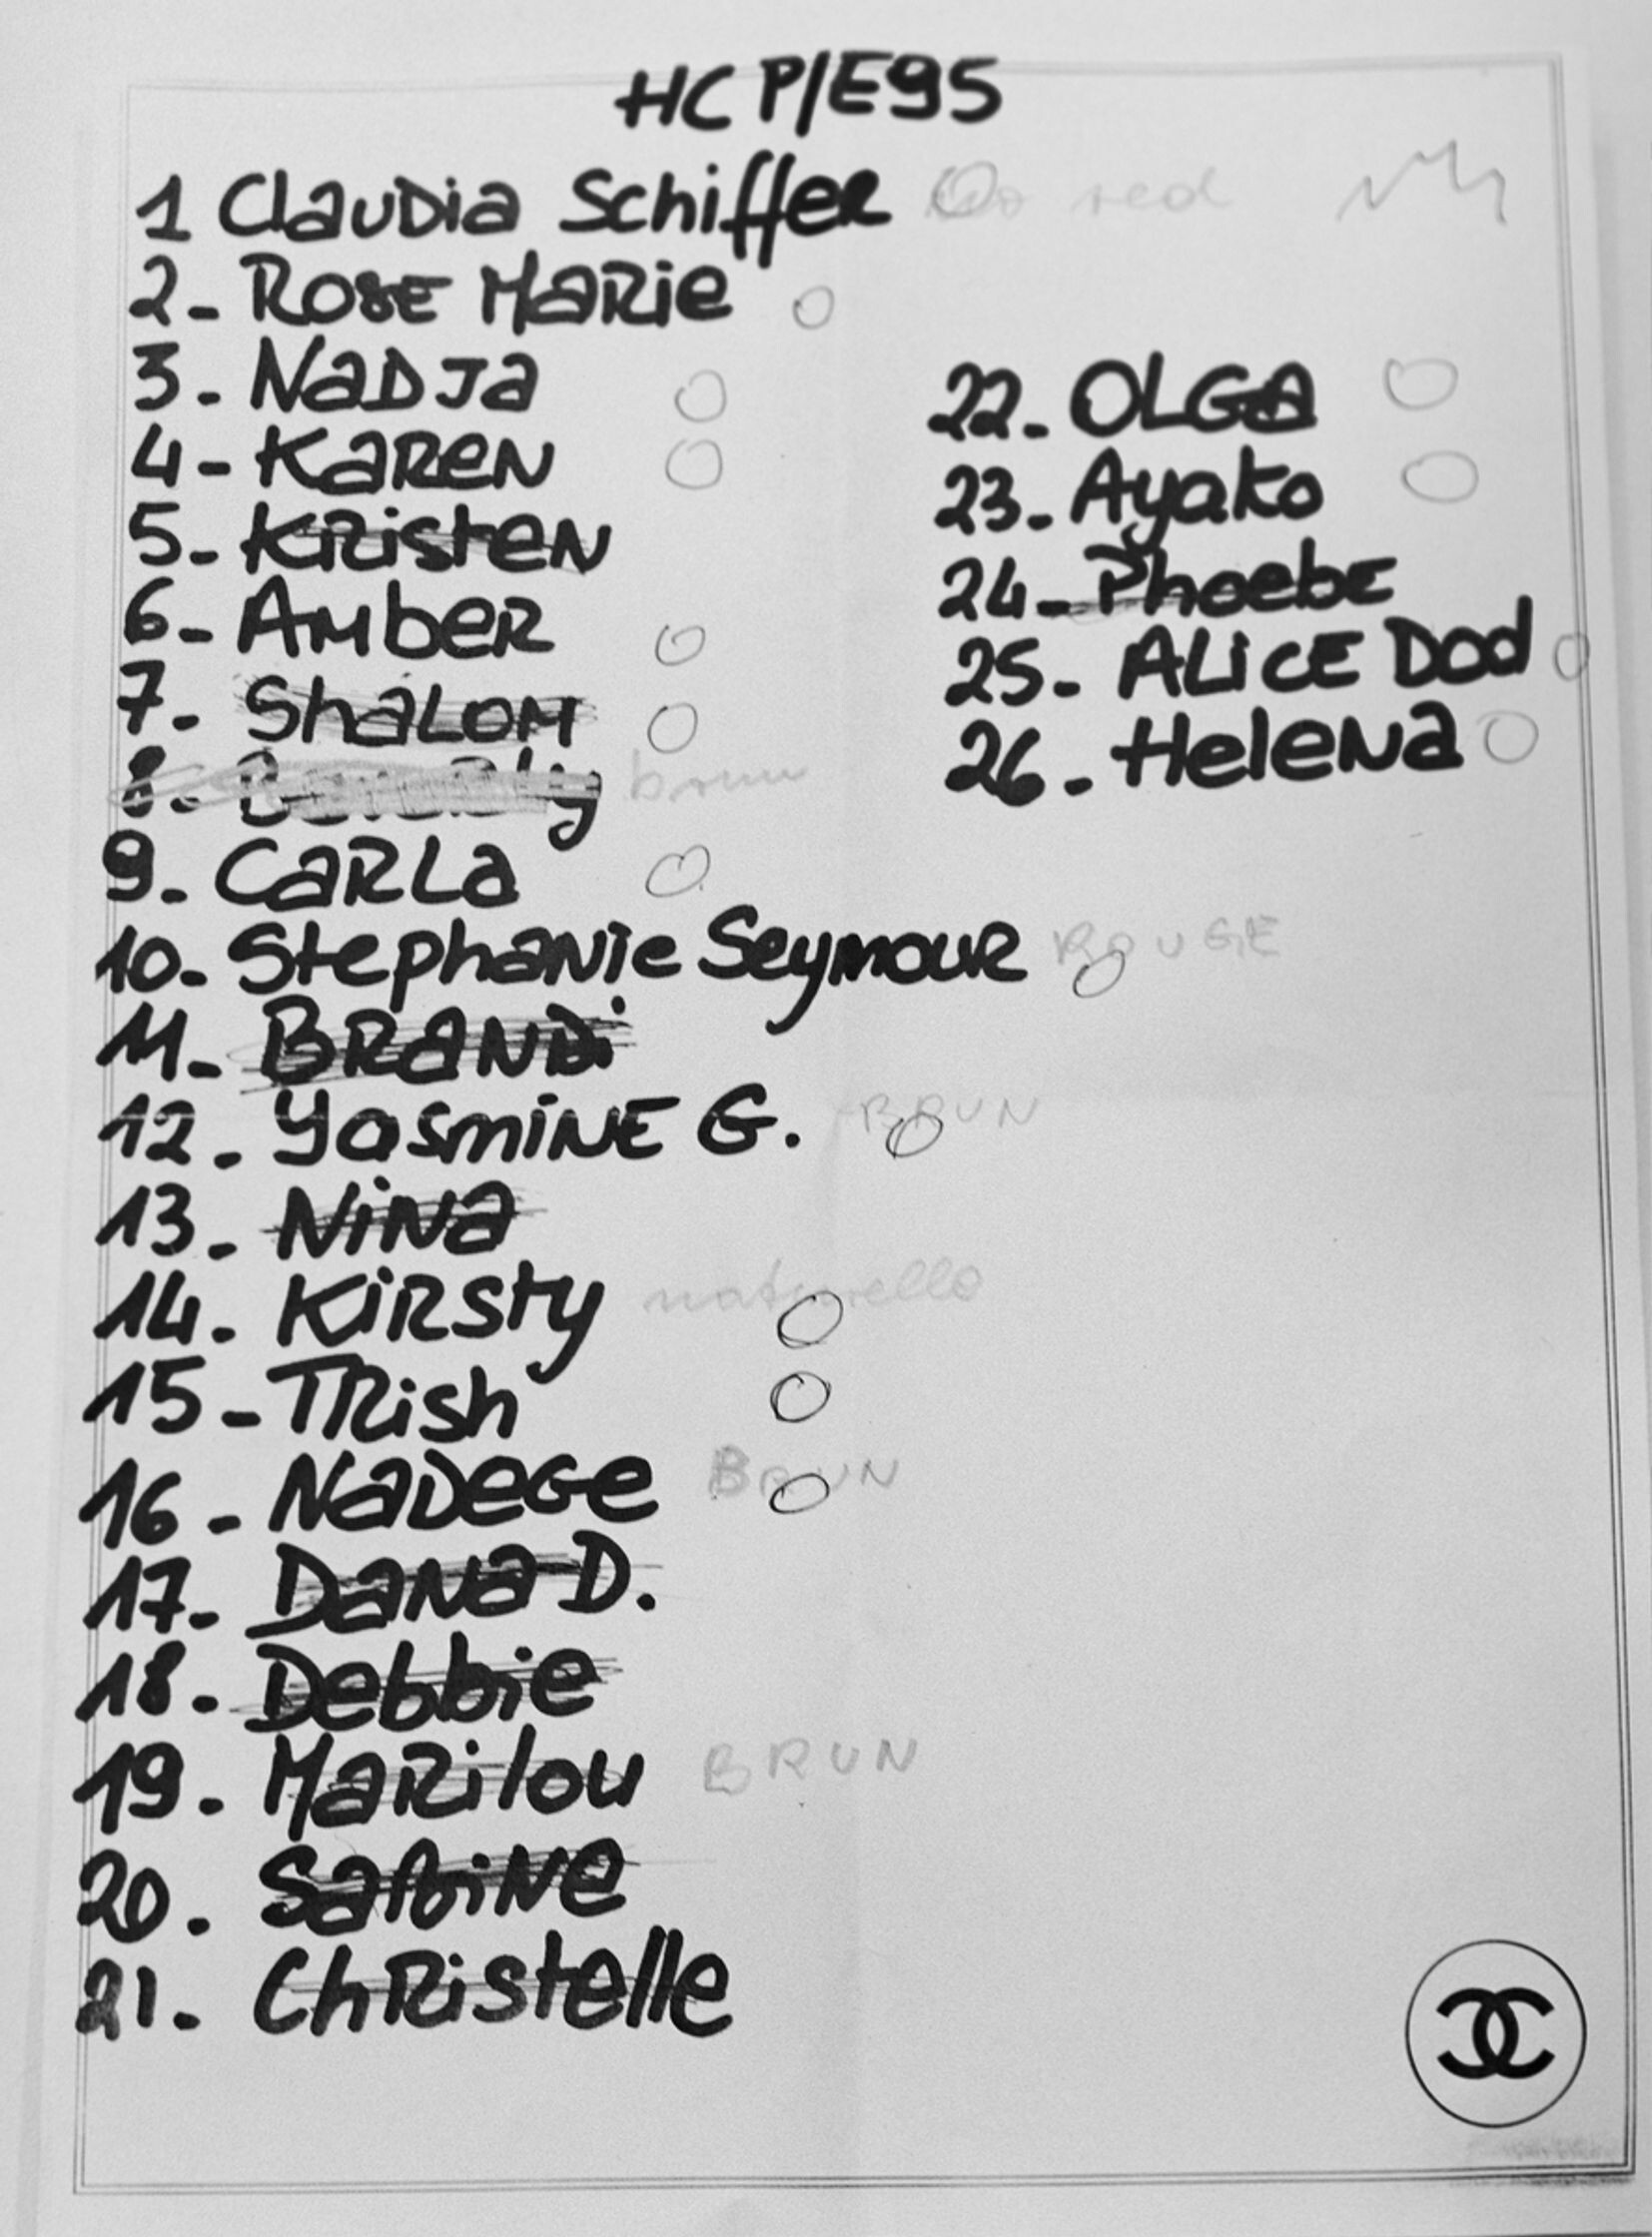 HC P/E95
1 Claudia Schiffer red
2- Rose Marie
3- Nadja
4- Karen
5- Kristen
6- Amber
7- Shalom
8- brun
9- Carla
10- Stephanie Seymour ROUGE
11- BRANDi
12- Yasmine G. BRUN
13- Nina
14- Kirsty naturello
15- Trish
16- Nadege BRUN
17- Dana D.
18- Debbie
19- Marilou BRUN
20- Sabine
21- Christelle
22- OLGA
23- Ayako
24- Phoebe
25- ALiCE Dod
26- Helena